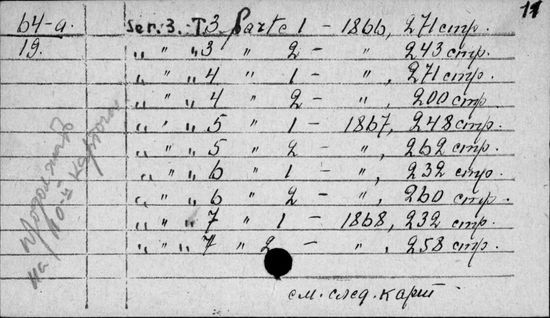 11
64-a.
19.
Ser. 3. T. 3 parte 1 – 1866, 271 стр.
„ „ „ 3 " 2 – ", 243 стр.
„ " „ 4 " 1 – ", 271 стр.
„ " „ 4 " 2 – ", 200 стр.
„ " „ 5 " 1 – 1867, 248 стр.
„ " „ 5 " 2 – ", 262 стр.
„ " „ 6 " 1 – ", 232 стр.
„ " „ 6 " 2 – ", 260 стр.
„ " „ 7 " 1 – 1868, 232 стр.
„ " „ 7 " 2 – ", 258 стр.
см. след. карт
на 10-й карточки